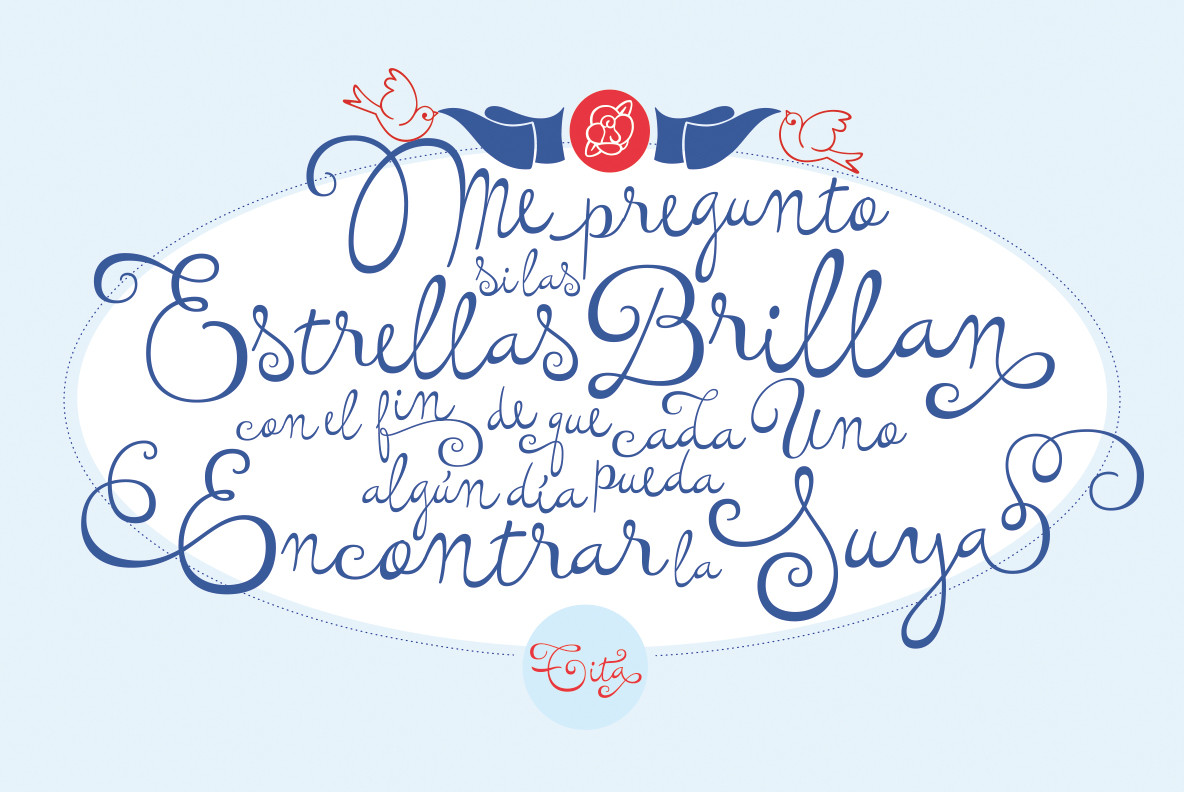 Me pregunto
si las
Estrellas Brillan
con el fin de que cada Uno
algún día pueda
Encontrar la Suya
Tita